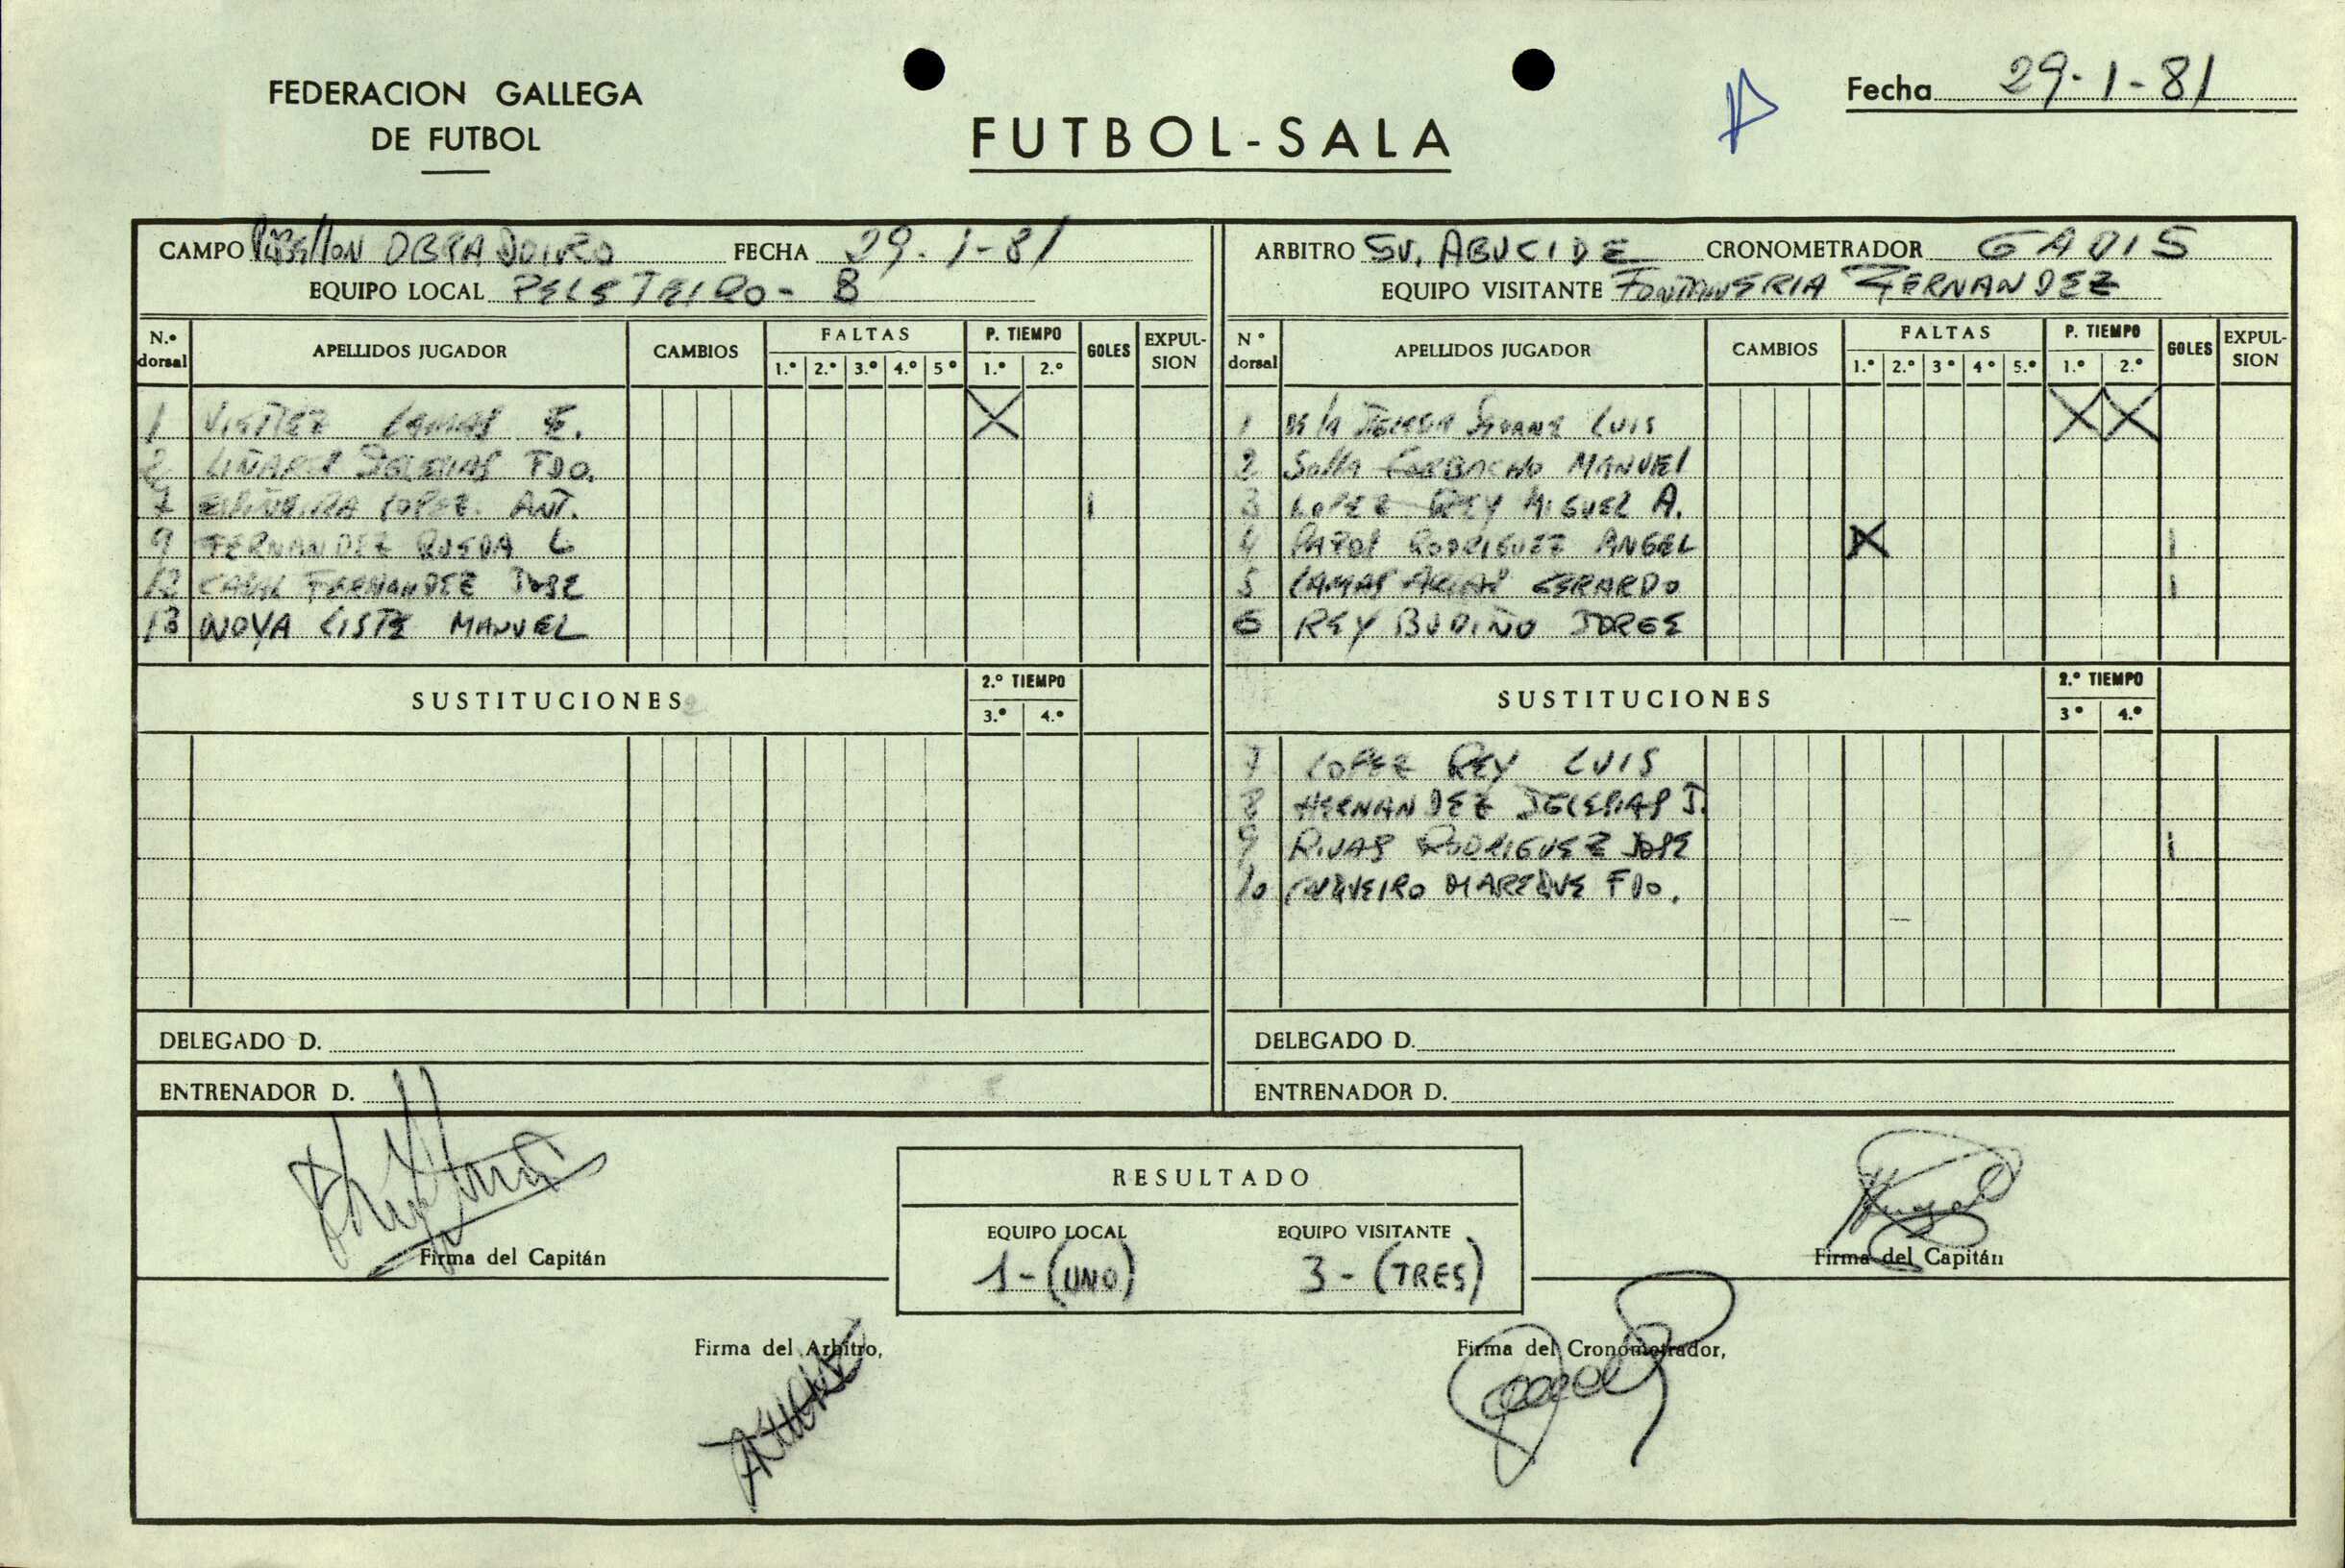 FEDERACION GALLEGA
DE FUTBOL
FUTBOL-SALA
Fecha 29-1-81
CAMPO OBRADOIRO FECHA 29-1-81
EQUIPO LOCAL PELETEIRO-B
N.º dorsal APELLIDOS JUGADOR CAMBIOS FALTAS 1.º 2.º 3.º 4.º 5º P. TIEMPO 1.º 2.º GOLES EXPULSION
1 LAMAS E.
2 LIÑARES IGLESIAS FDO.
7 ESPIÑEIRA LOPEZ ANT. 1
9 FERNANDEZ RUEDA L
12 FERNANDEZ JOSE
13 NOYA LISTE MANUEL
SUSTITUCIONES 2.º TIEMPO 3.º 4.º
DELEGADO D.
ENTRENADOR D.
ARBITRO SV. ABUCIDE CRONOMETRADOR GADIS
EQUIPO VISITANTE FONTANERIA FERNANDEZ
Nº dorsal APELLIDOS JUGADOR CAMBIOS FALTAS 1.º 2.º 3º 4º 5.º P. TIEMPO 1.º 2.º GOLES EXPULSION
1 DE LA SEOANE LUIS
2 CORBACHO MANUEL
3 LOPEZ REY MIGUEL A.
4 PAZOS RODRIGUEZ ANGEL X 1
5 LAMAS ARIAS GERARDO 1
6 REY BUDIÑO JORGE
SUSTITUCIONES 2.º TIEMPO 3º 4.º
7 LOPEZ REY LUIS
8 HERNANDEZ IGLESIAS J.
9 RIVAS RODRIGUEZ JOSE 1
10 MAREQUE FDO.
DELEGADO D.
ENTRENADOR D.
RESULTADO
EQUIPO LOCAL EQUIPO VISITANTE
1-(UNO) 3-(TRES)
Firma del Capitán
Firma del Capitán
Firma del Arbitro,
Firma del Cronometrador,